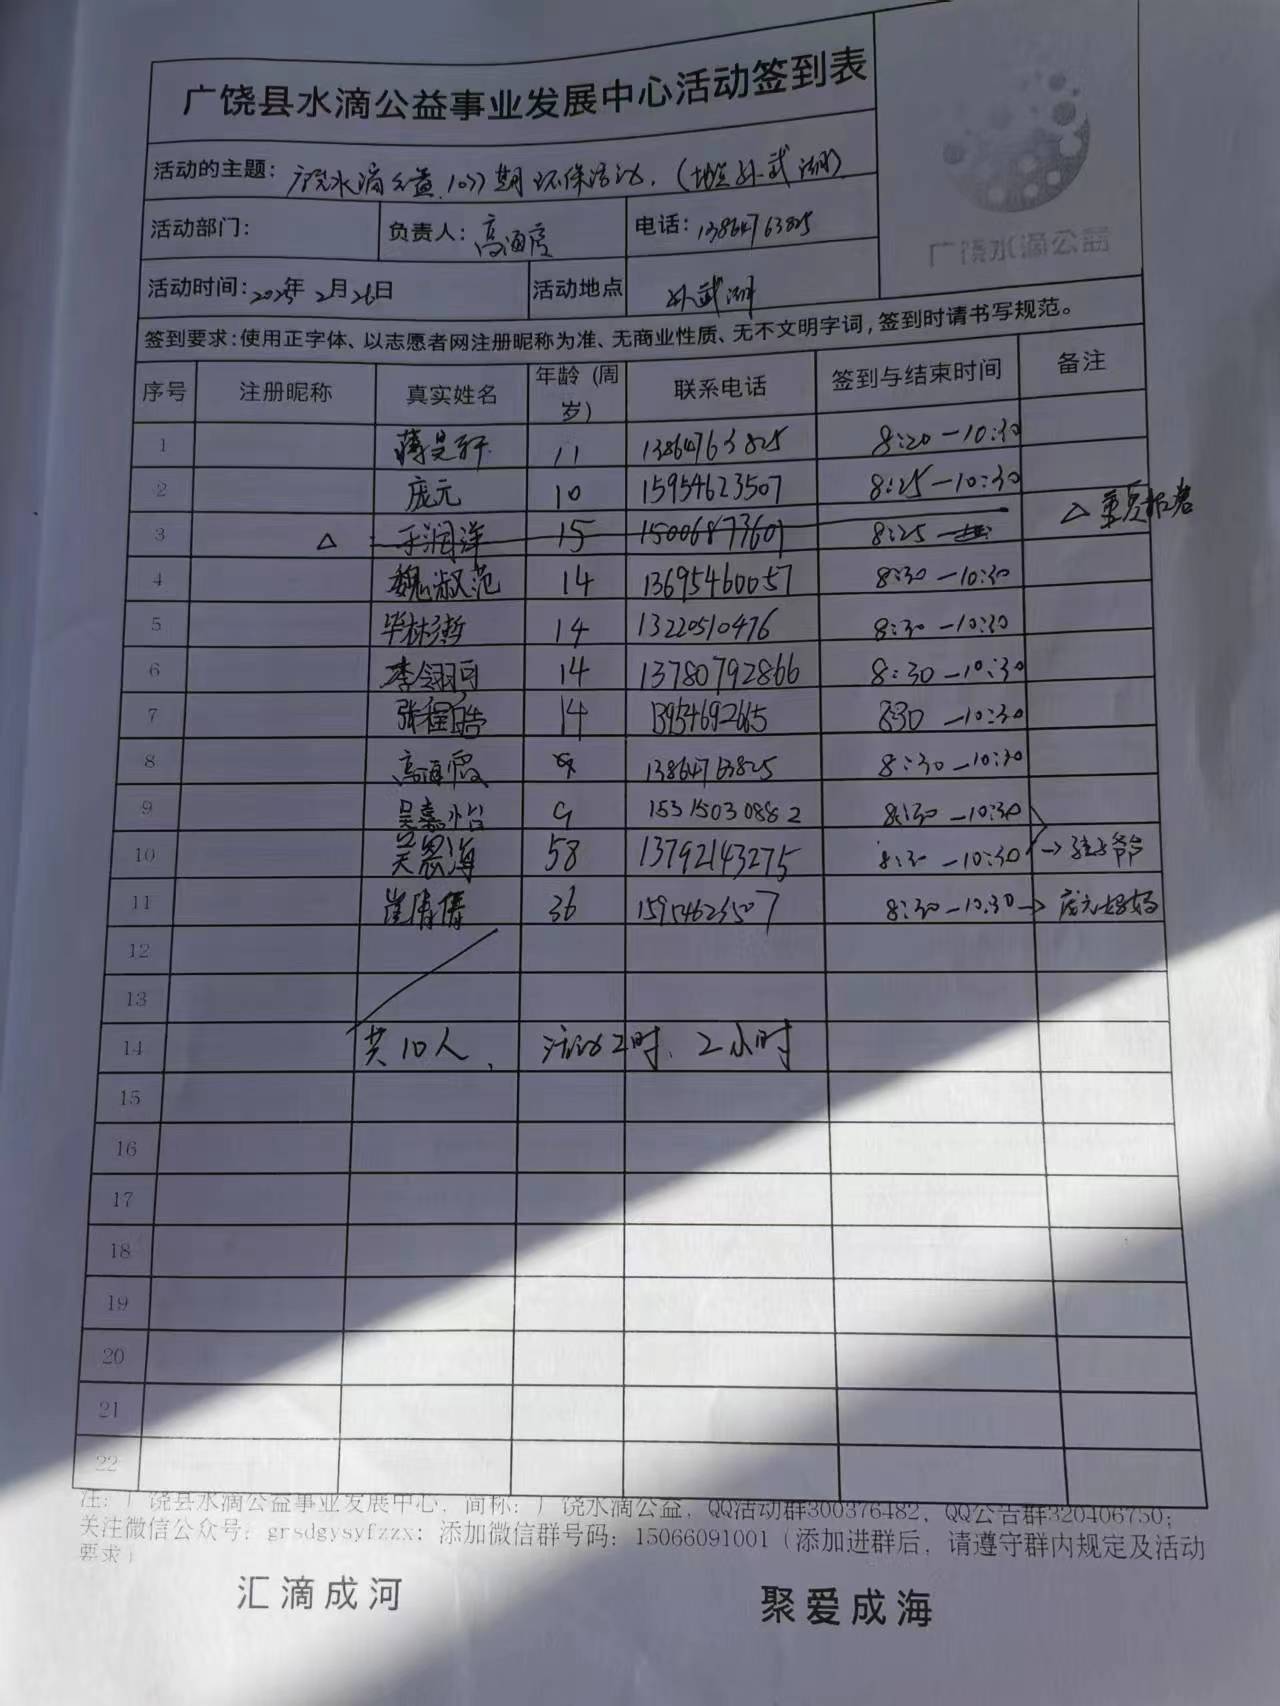 广饶县水滴公益事业发展中心活动签到表
广饶水滴公益
活动的主题：广饶水滴公益1077期环保活动，（地点孙武湖）
活动部门： 负责人：高海霞 电话：13864763825
活动时间：2025年2月26日 活动地点 孙武湖
签到要求：使用正字体、以志愿者网注册昵称为准、无商业性质、无不文明字词，签到时请书写规范。
序号 注册昵称 真实姓名 年龄（周岁） 联系电话 签到与结束时间 备注
1 11 13864763825 8:20-10:30
2 庞元 10 15954623507 8:25-10:30
3 △ 于润洋 15 15006877601 8:25 △
4 魏淑范 14 13695460057 8:30-10:30
5 14 13220510476 8:30-10:30
6 李翎可 14 13780792866 8:30-10:30
7 张程皓 14 13954692665 830-10:30
8 高海霞 13864763825 8:30-10:30
9 吴嘉怡 9 15315030882 8:30-10:30
10 吴恩海 58 13792143275 8:30-10:30 → 孩子爷爷
11 崔倩倩 36 15954623507 8:30-10:30 → 庞元妈妈
12
13
14 共10人， 活动2时，2小时
15
16
17
18
19
20
21
22
注：广饶县水滴公益事业发展中心，简称：广饶水滴公益，QQ活动群300376482，QQ公告群320406750；
关注微信公众号：grsdgysyfzzx；添加微信群号码：15066091001（添加进群后，请遵守群内规定及活动
要求）
汇滴成河 聚爱成海